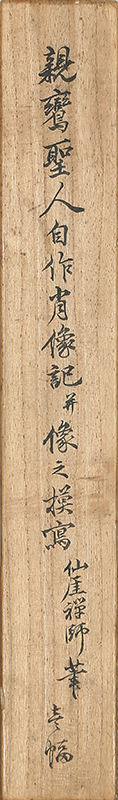 親鸞聖人自作肖像記并像之模寫 仙厓禅師筆 壱幅